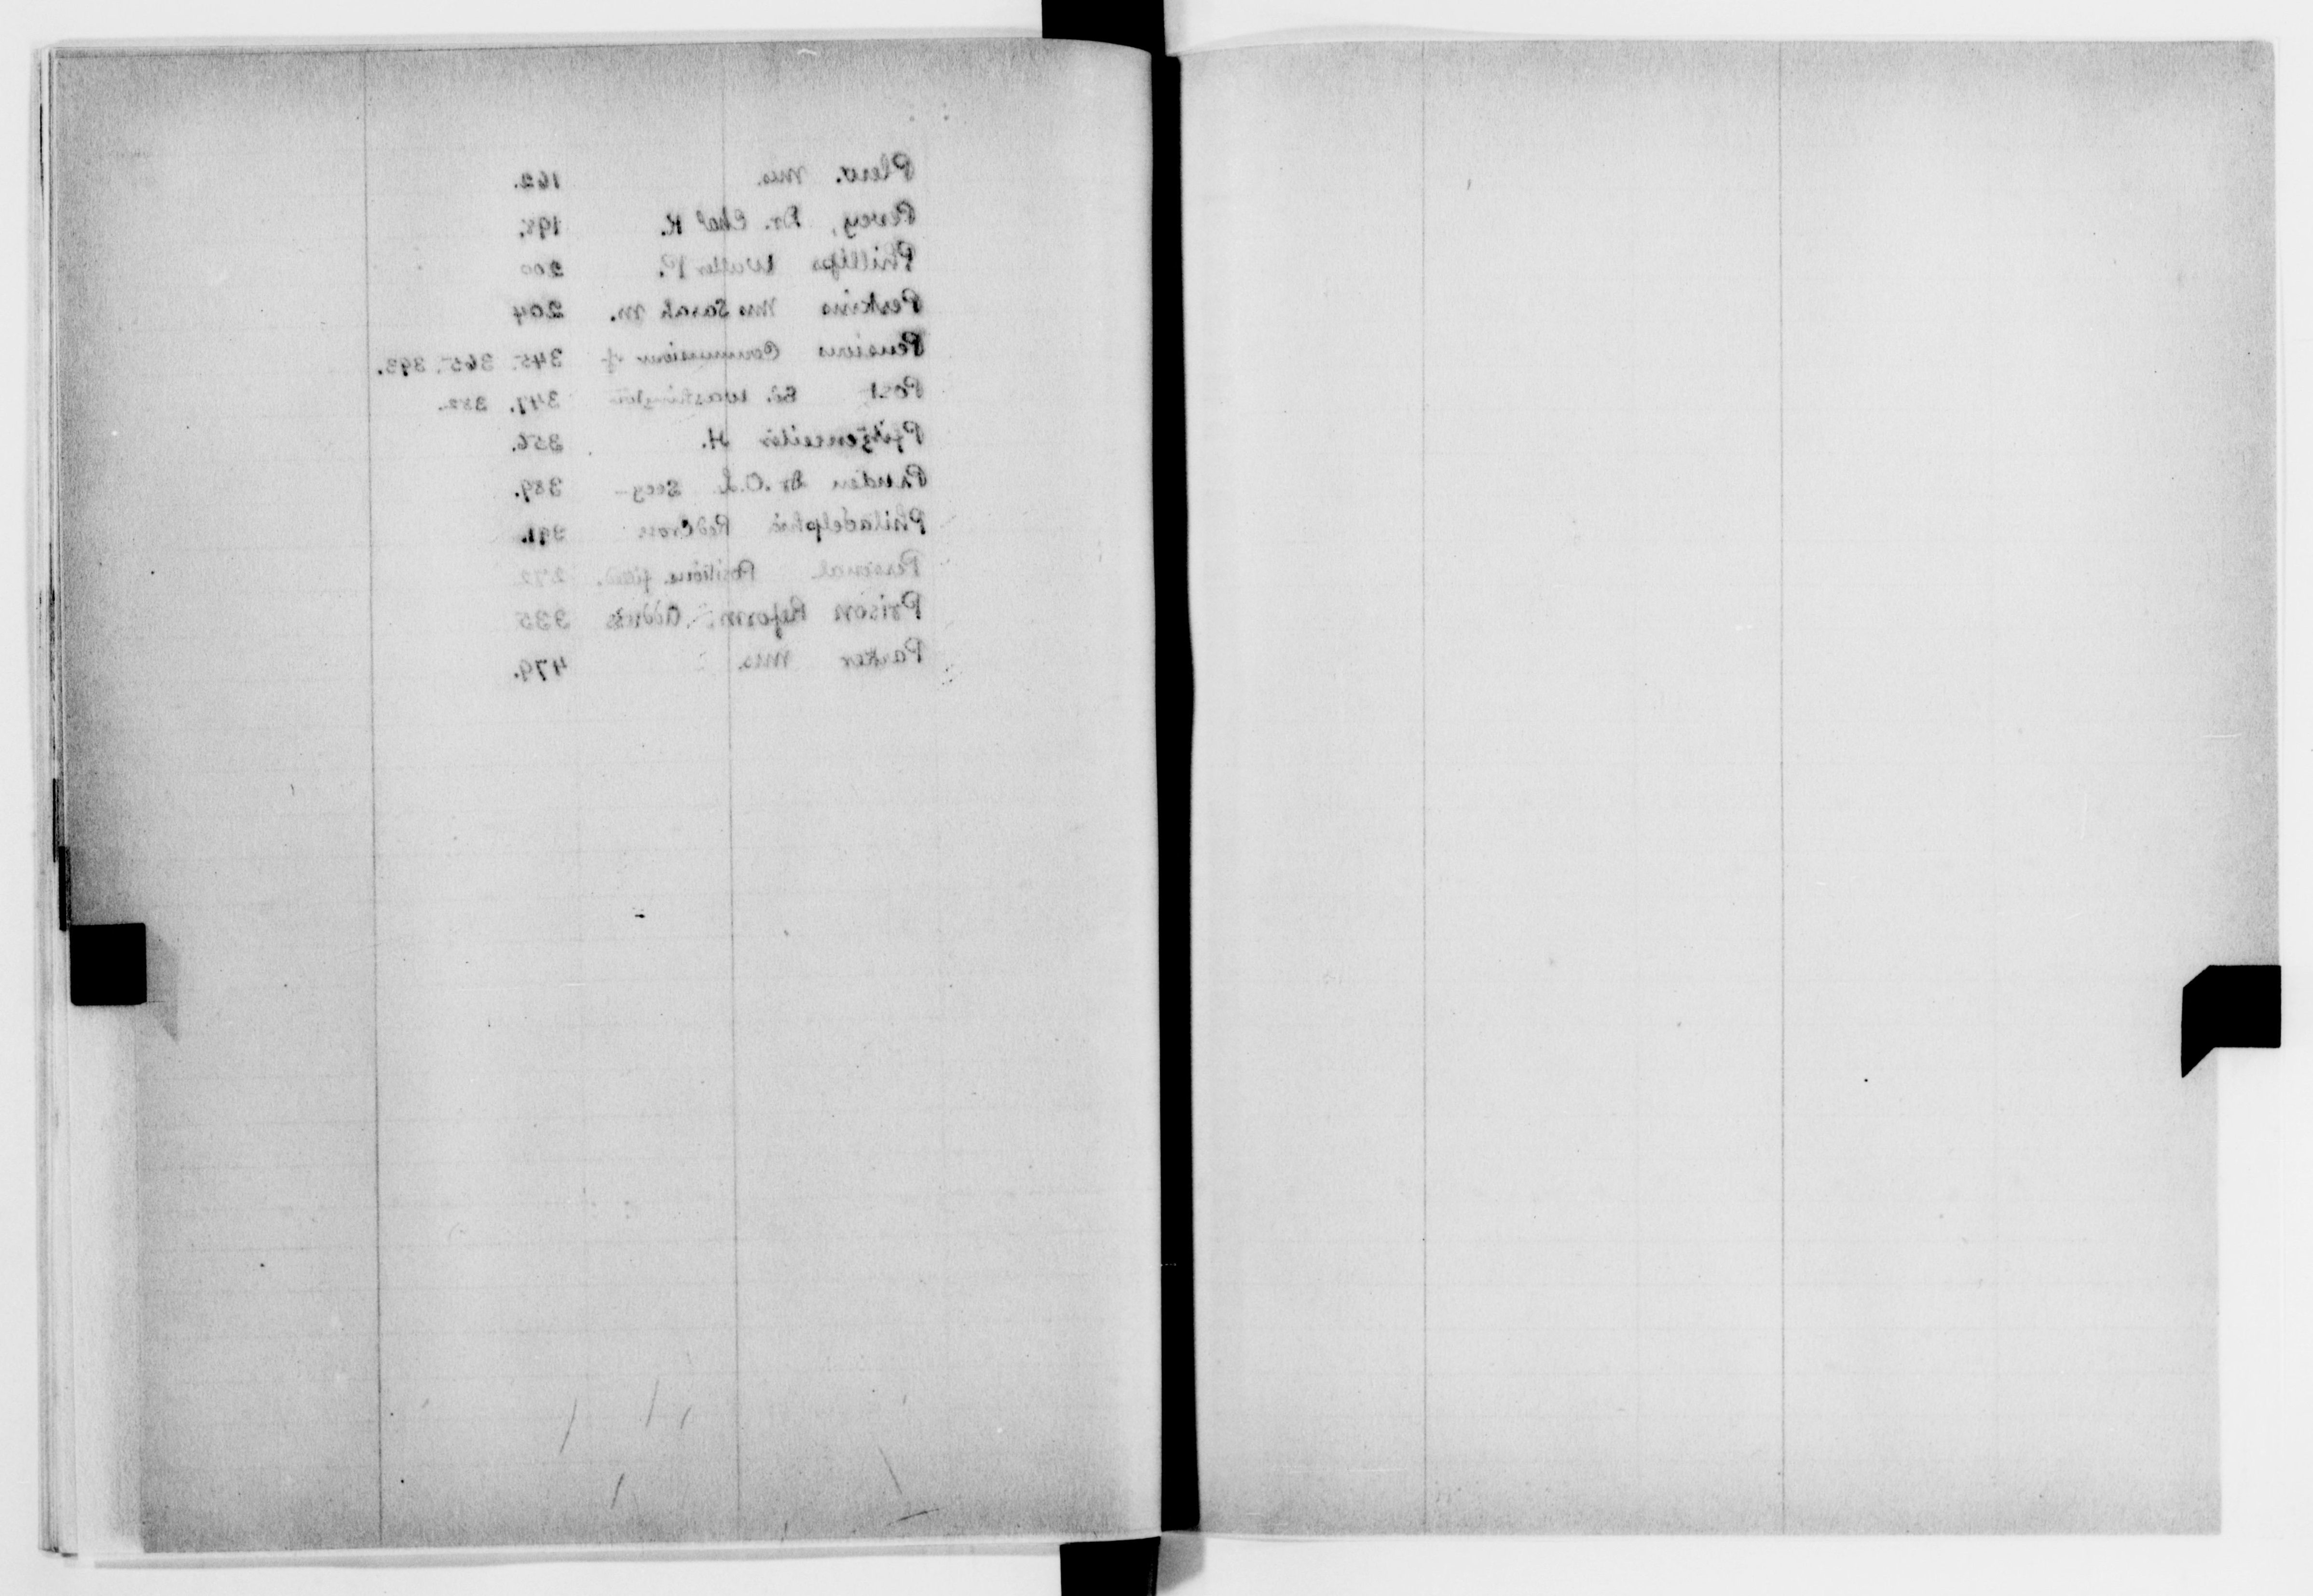 Plew. Mrs. 162.
Pevey, Dr. Chas K. 198.
Phillips Walter P. 200
Perkins Mrs Sarah M. 204
Pensions Commissioner of 345. 365. 393.
Post Ed. Washington 347. 382.
H. 356.
Pruden Dr. O.L. Secy- 389.
Philadelphia Red Cross 391.
Personal Positions filled. 272
Prison Reform. Address 335
Parker Mrs. 479.